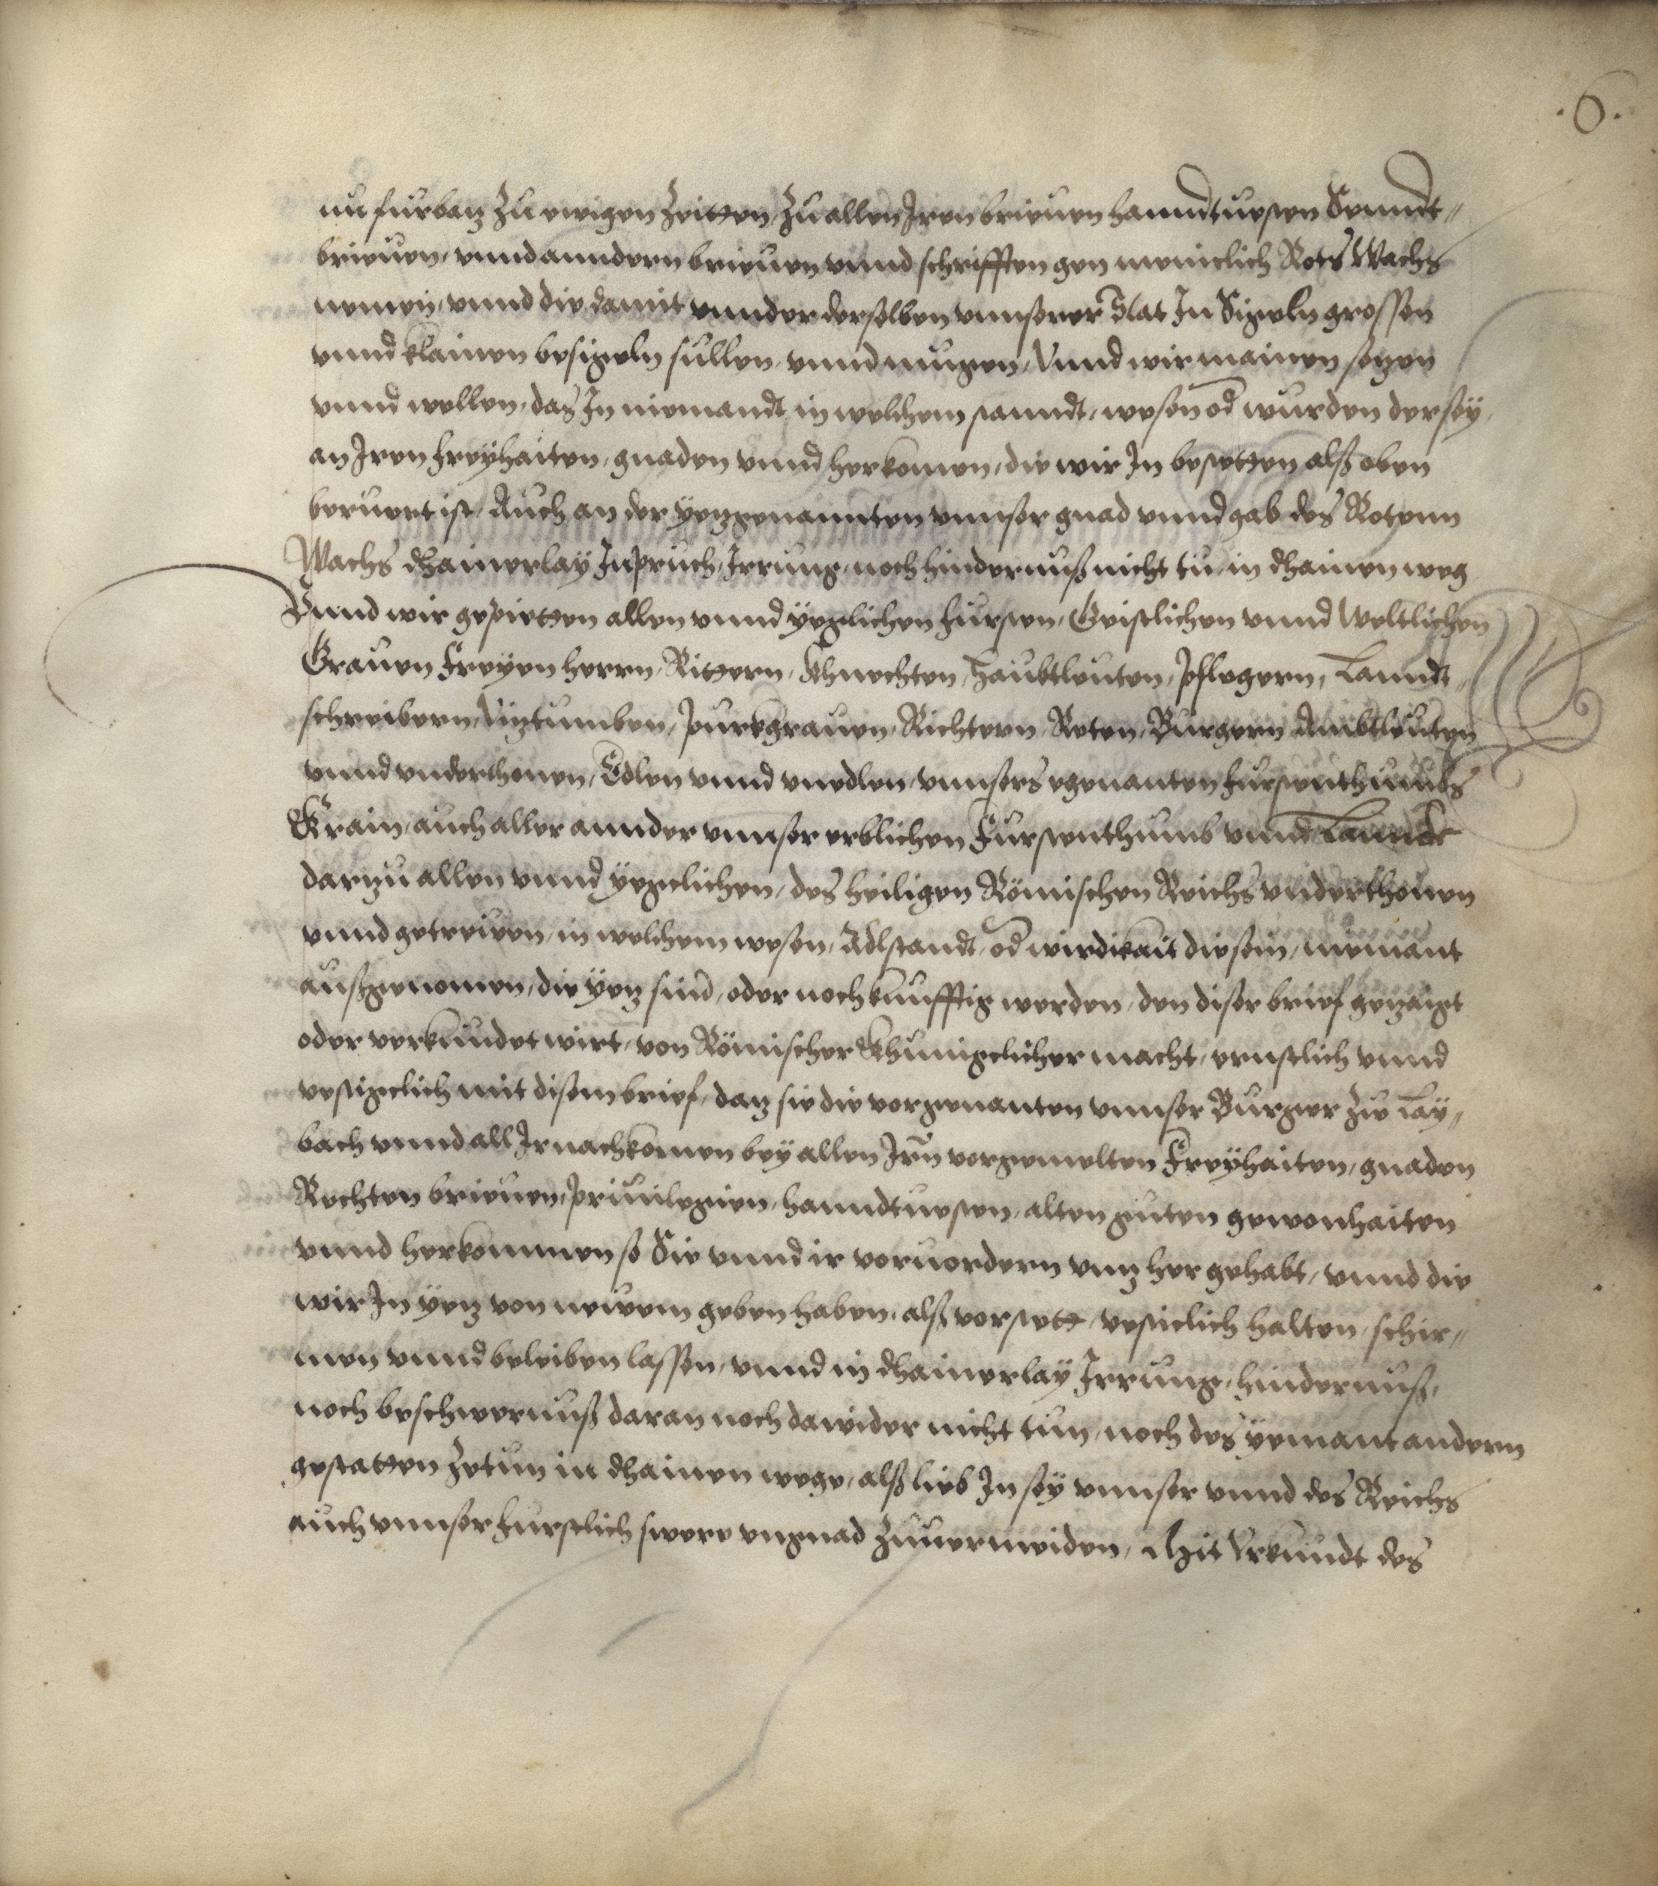 .6.
nu furbaz zu ewigen Zeitten, Zu allen Iren brieuen hanndtuesten Senndt„
brieuen, vnnd anndern brieuen vnnd schrifften gen meniclich Rots Wachs
nemen, vnnd die damit vnnder derselben vnnserer Stat In Sigeln grossen
vnnd klainen besigeln sullen, vnnd mugen, Vnnd wir mainen sezen
vnnd wellen, das In niemandt in welchem standt, wesen od wurden der sey
an Iren Freyhaiten, gnaden vnnd herkomen, die wir In bestetten alß oben
beruert ist, Auch an der yezgenannten vnnser gnad vnnd gab des Rotenn
Wachs dhainerlay Inpruch, Irrung, noch hindernuß nicht tu, in dhainen weg
Vnnd wir gepietten allen vnnd yeglichen Fursten, Geistlichen vnnd Weltlichen
Grauen Freyen herrn, Rittern, Khnechten, Haubtleuten, Pflegern, Lanndt„
schreibern, Viztumben, Purkgrauen, Richtern Reten, Burgern Ambtleuten
vnnd vnderthonen, Edlen vnnd vnedlen, vnnsers egenanten Furstenthumbs
Krain, auch aller annder vnnser erblichen Furstenthumb vnnd Lannde
darzu allen vnnd yegclichen, des heiligen Römischen Reichs vnderthonen
vnnd getreuen, in welchem wesen, Adlstandt, od wirdikait die sein, niemant
außgenomen, die yez sind, oder noch kunfftig werden, den diser brief gezaigt
oder verkundet wirt, von Römischer Khunigclicher macht, ernstlich vnnd
vestigclich mit disem brief, daz sie die vorgenanten vnnser Burger zu Lay„
bach vnnd all Ir nachkomen bey allen Irn vorgemelten Freyhaiten, gnaden
Rechten brieuen, Priuilegien, hanndtuesten, alten guten gewonhaiten
vnnd herkommen so Sie vnnd ir voruordern vnnz her gehabt, vnnd die
wir In yez von newem geben haben, alß vorstett, vesticlich halten, schir„
men vnnd beleiben lassen, vnnd in dhainerlay Irrung, hindernuß,
noch beschwernuß daran noch dawider nicht tun, noch des yemant andern
gestatten Zetun in dhainen wege, alß lieb In sey vnnser vnnd des Reichs
auch vnnser Furstlich swere vngnad Zuuermeiden, Mit Vrkundt des